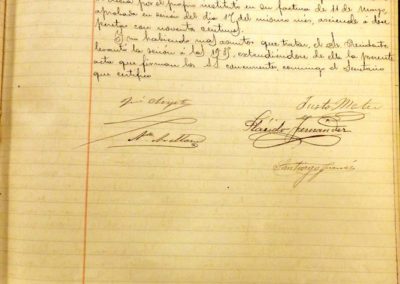 por el propio instituto en su factura de 11 de Marzo,
aprobada en sesion del dia 17 del mismo mes, asciende á doce
pesetas con noventa centimos.
Y no habiendo mas asuntos que tratar, el Sr. Presidente
levantó la sesion á las 19'35, extendiendose de ella la presente
acta que firman los S.S. concurrentes, conmigo el Secretario
que certifico
Justo
Plácido Fernandez
Santiago